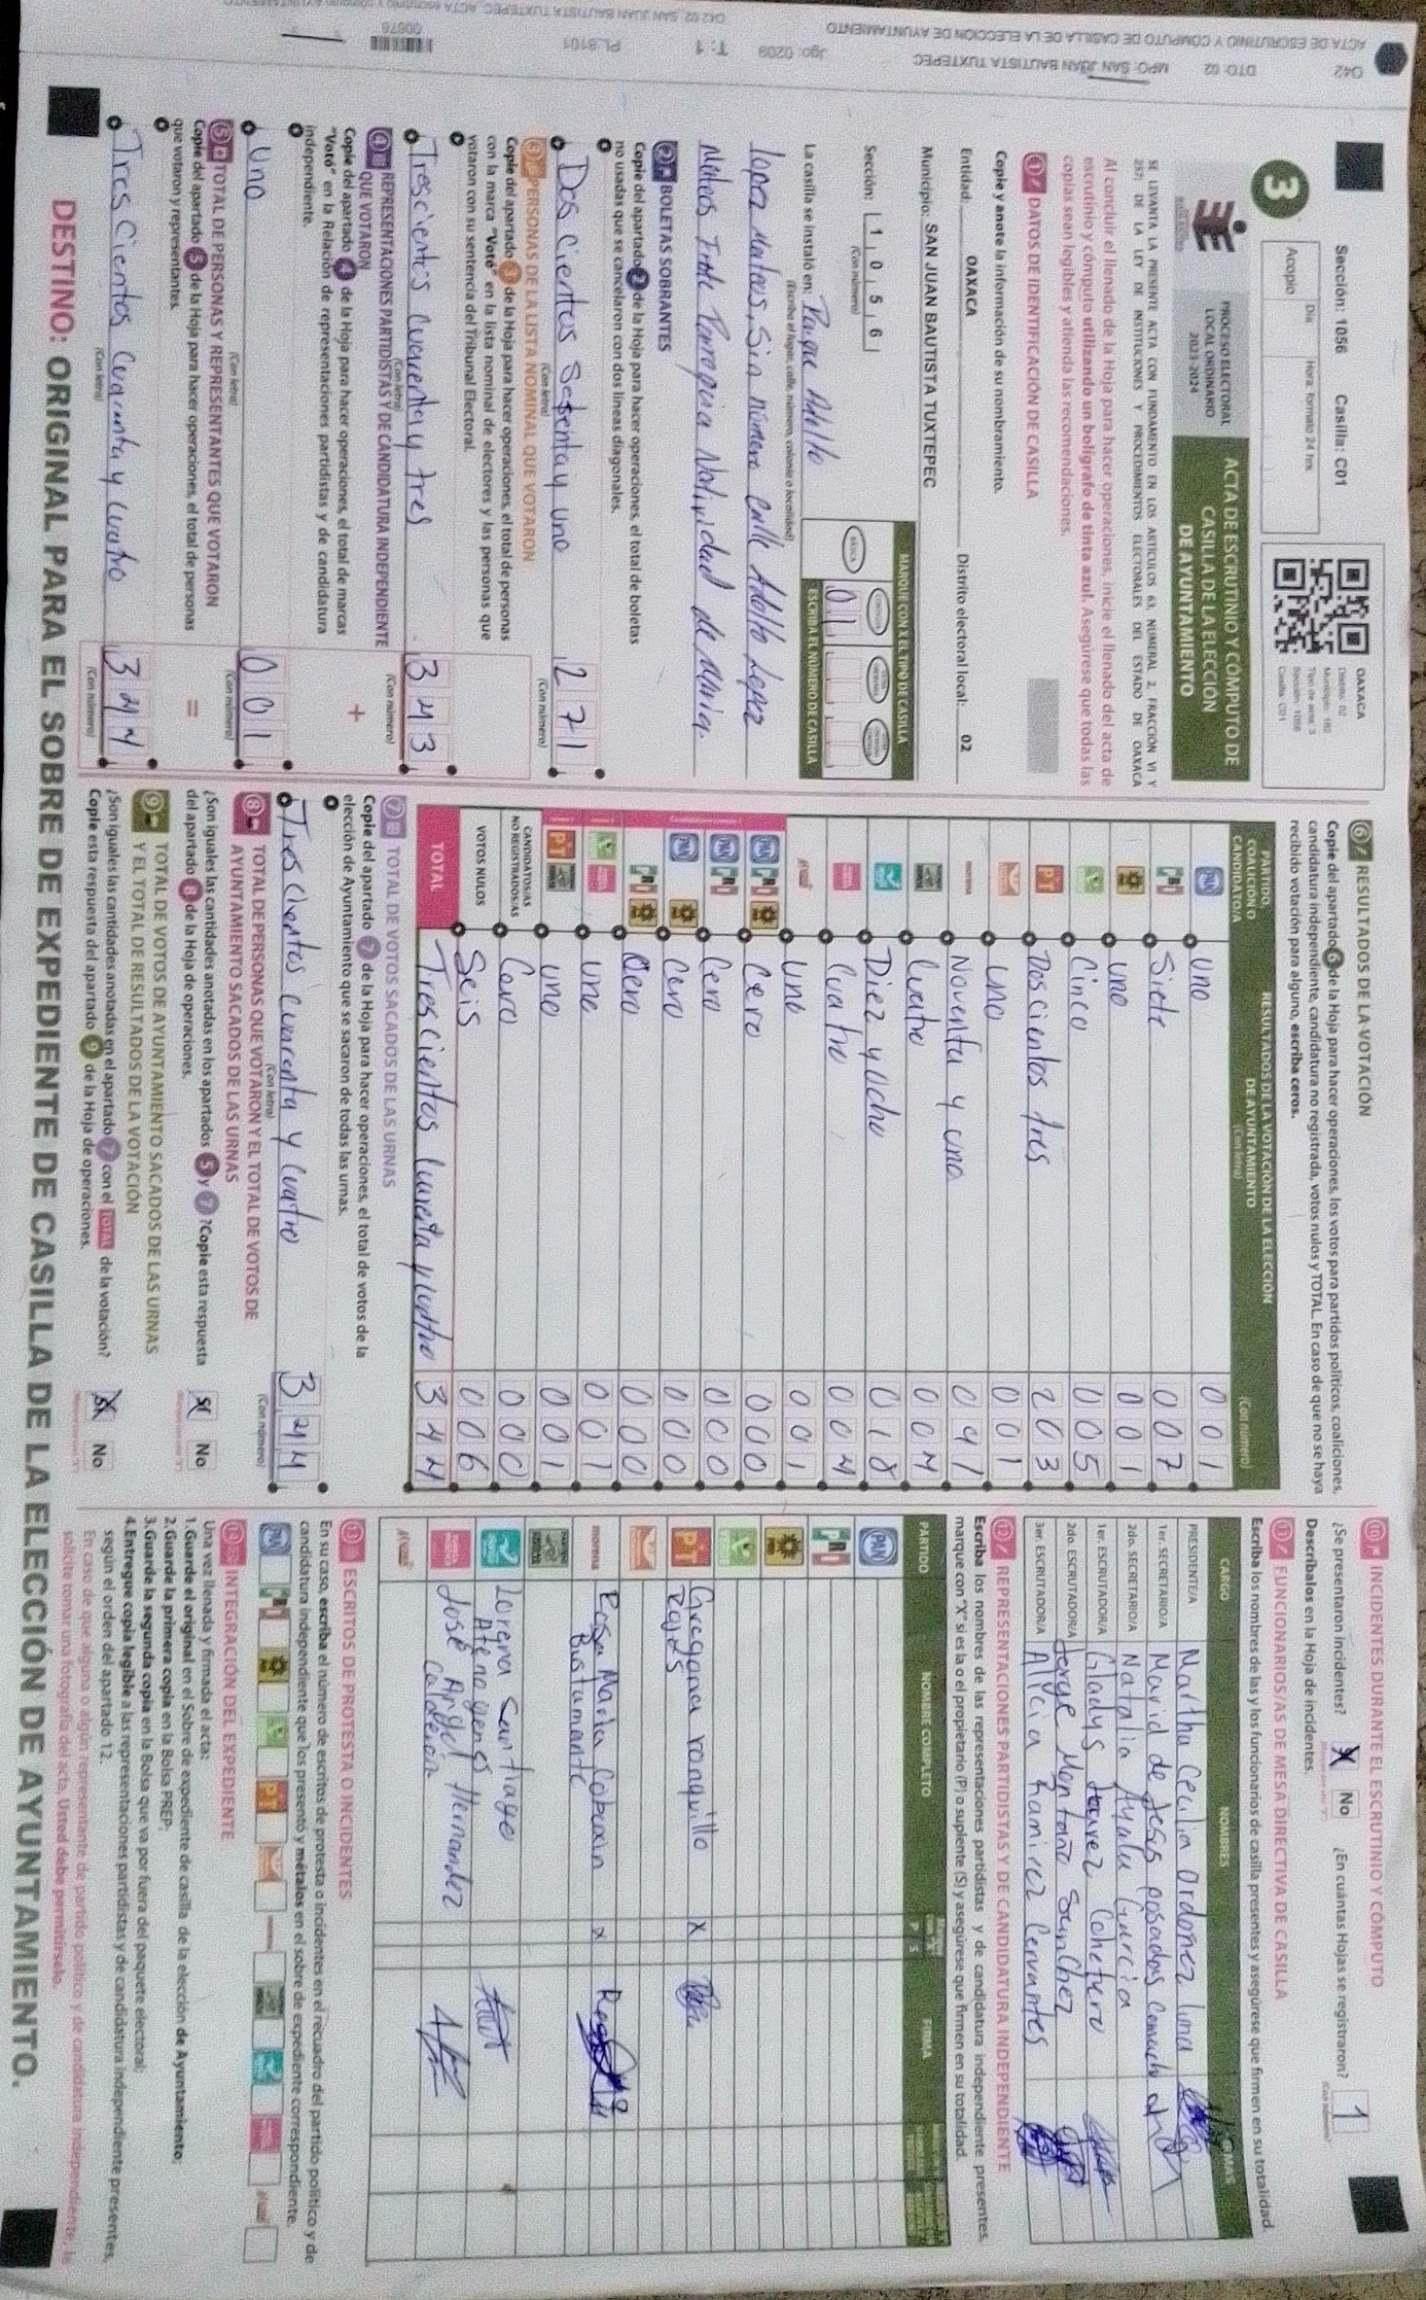 042 DTO: 02 MPO: SAN JUAN BAUTISTA TUXTEPEC Jgo: 0209 T: 1 PL:8101 00678
ACTA DE ESCRUTINIO Y CÓMPUTO DE CASILLA DE LA ELECCIÓN DE AYUNTAMIENTO
Sección: 1056 Casilla: C01
3
Acopio
Día
Hora: formato 24 hrs.
OAXACA
Distrito: 02
Tipo de acta: 3
Sección: 1056
Casilla: C01
PROCESO ELECTORAL
LOCAL ORDINARIO
2023-2024
ACTA DE ESCRUTINIO Y CÓMPUTO DE
CASILLA DE LA ELECCIÓN
DE AYUNTAMIENTO
SE LEVANTA LA PRESENTE ACTA CON FUNDAMENTO EN LOS ARTÍCULOS 63, NUMERAL 2, FRACCIÓN VI Y
257; DE LA LEY DE INSTITUCIONES Y PROCEDIMIENTOS ELECTORALES DEL ESTADO DE OAXACA
Al concluir el llenado de la Hoja para hacer operaciones, inicie el llenado del acta de
escrutinio y cómputo utilizando un bolígrafo de tinta azul. Asegúrese que todas las
copias sean legibles y atienda las recomendaciones.
1 DATOS DE IDENTIFICACIÓN DE CASILLA
Copie y anote la información de su nombramiento.
Entidad: OAXACA Distrito electoral local: 02
Municipio: SAN JUAN BAUTISTA TUXTEPEC
Sección: 1 0 5 6
(Con número)
MARQUE CON X EL TIPO DE CASILLA
BÁSICA
01
ESCRIBA EL NÚMERO DE CASILLA
La casilla se instaló en: Parque Adolfo
(Escriba el lugar, calle, número, colonia o localidad)
lopez Mateos, Sin número Calle Adolfo Lopez
Mateos Frente Parroquia Natividad de maria.
2 BOLETAS SOBRANTES
Copie del apartado 2 de la Hoja para hacer operaciones, el total de boletas
no usadas que se cancelaron con dos líneas diagonales.
Dos Cientos Setenta y uno 271
(Con letra) (Con número)
3 PERSONAS DE LA LISTA NOMINAL QUE VOTARON
Copie del apartado 3 de la Hoja para hacer operaciones, el total de personas
con la marca "Votó" en la lista nominal de electores y las personas que
votaron con su sentencia del Tribunal Electoral.
Trescientos cuarenta y tres 343
(Con letra) (Con número)
4 REPRESENTACIONES PARTIDISTAS Y DE CANDIDATURA INDEPENDIENTE
QUE VOTARON
Copie del apartado 4 de la Hoja para hacer operaciones, el total de marcas
"Votó" en la Relación de representaciones partidistas y de candidatura
independiente.
+
Uno 001
(Con letra) (Con número)
5 TOTAL DE PERSONAS Y REPRESENTANTES QUE VOTARON
Copie del apartado 5 de la Hoja para hacer operaciones, el total de personas
que votaron y representantes.
=
Tres Cientos Cuarenta y Cuatro 344
(Con letra) (Con número)
6 RESULTADOS DE LA VOTACIÓN
Copie del apartado 6 de la Hoja para hacer operaciones, los votos para partidos políticos, coaliciones,
candidatura independiente, candidatura no registrada, votos nulos y TOTAL. En caso de que no se haya
recibido votación para alguno, escriba ceros.
PARTIDO,
COALICIÓN O
CANDIDATO/A
RESULTADOS DE LA VOTACIÓN DE LA ELECCIÓN
DE AYUNTAMIENTO
(Con letra) (Con número)
PAN Uno 001
PRI Siete 007
uno 001
Cinco 005
PT Doscientos tres 203
uno 001
morena Noventa y uno 091
Cuatro 004
Diez y Ocho 018
Cuatro 004
Uno 001
PAN PRI Cero 000
PAN PRI Cero 000
PAN Cero 000
PRI Cero 000
Uno 001
PT uno 001
CANDIDATOS/AS
NO REGISTRADOS/AS Cero 000
VOTOS NULOS Seis 006
TOTAL Trescientos Cuarenta y Cuatro 344
7 TOTAL DE VOTOS SACADOS DE LAS URNAS
Copie del apartado 7 de la Hoja para hacer operaciones, el total de votos de la
elección de Ayuntamiento que se sacaron de todas las urnas.
Trescientos Cuarenta y Cuatro 344
(Con letra) (Con número)
8 TOTAL DE PERSONAS QUE VOTARON Y EL TOTAL DE VOTOS DE
AYUNTAMIENTO SACADOS DE LAS URNAS
¿Son iguales las cantidades anotadas en los apartados 5 y 7? Copie esta respuesta
del apartado 8 de la Hoja de operaciones.
Sí No
9 TOTAL DE VOTOS DE AYUNTAMIENTO SACADOS DE LAS URNAS
Y EL TOTAL DE RESULTADOS DE LA VOTACIÓN
¿Son iguales las cantidades anotadas en el apartado 7 con el TOTAL de la votación?
Copie esta respuesta del apartado 9 de la Hoja de operaciones.
Sí No
10 INCIDENTES DURANTE EL ESCRUTINIO Y CÓMPUTO
¿Se presentaron incidentes? No ¿En cuántas Hojas se registraron? 1
Descríbalos en la Hoja de incidentes.
11 FUNCIONARIOS/AS DE MESA DIRECTIVA DE CASILLA
Escriba los nombres de las y los funcionarios de casilla presentes y asegúrese que firmen en su totalidad.
CARGO NOMBRES FIRMAS
PRESIDENTE/A Martha Cecilia Ordoñez luna
1er. SECRETARIO/A Marid de Jesus posadas
2do. SECRETARIO/A Natalia Ayala Garcia
1er. ESCRUTADOR/A Gladys Juarez Cohetero
2do. ESCRUTADOR/A Jorge Montaño Sanchez
3er. ESCRUTADOR/A Alicia Ramirez Cervantes
12 REPRESENTACIONES PARTIDISTAS Y DE CANDIDATURA INDEPENDIENTE
Escriba los nombres de las representaciones partidistas y de candidatura independiente presentes,
marque con "X" si es la o el propietario (P) o suplente (S) y asegúrese que firmen en su totalidad.
PARTIDO NOMBRE COMPLETO P S FIRMA
PAN
PRI
PT Gregoria ronquillo X
Rojas
morena Rosa Maria Cobixin X
Bustamante
Lorena Santiago
Atenogenes
José Angel Hernandez
Calderon
13 ESCRITOS DE PROTESTA O INCIDENTES
En su caso, escriba el número de escritos de protesta o incidentes en el recuadro del partido político y de
candidatura independiente que los presentó y métalos en el sobre de expediente correspondiente.
PAN PRI PT
14 INTEGRACIÓN DEL EXPEDIENTE
Una vez llenada y firmada el acta:
1. Guarde el original en el Sobre de expediente de casilla de la elección de Ayuntamiento;
2. Guarde la primera copia en la Bolsa PREP;
3. Guarde la segunda copia en la Bolsa que va por fuera del paquete electoral;
4. Entregue copia legible a las representaciones partidistas y de candidatura independiente presentes,
según el orden del apartado 12.
En caso de que alguna o algún representante de partido político y de candidatura independiente, le
solicite tomar una fotografía del acta, Usted debe permitírselo.
DESTINO: ORIGINAL PARA EL SOBRE DE EXPEDIENTE DE CASILLA DE LA ELECCIÓN DE AYUNTAMIENTO.